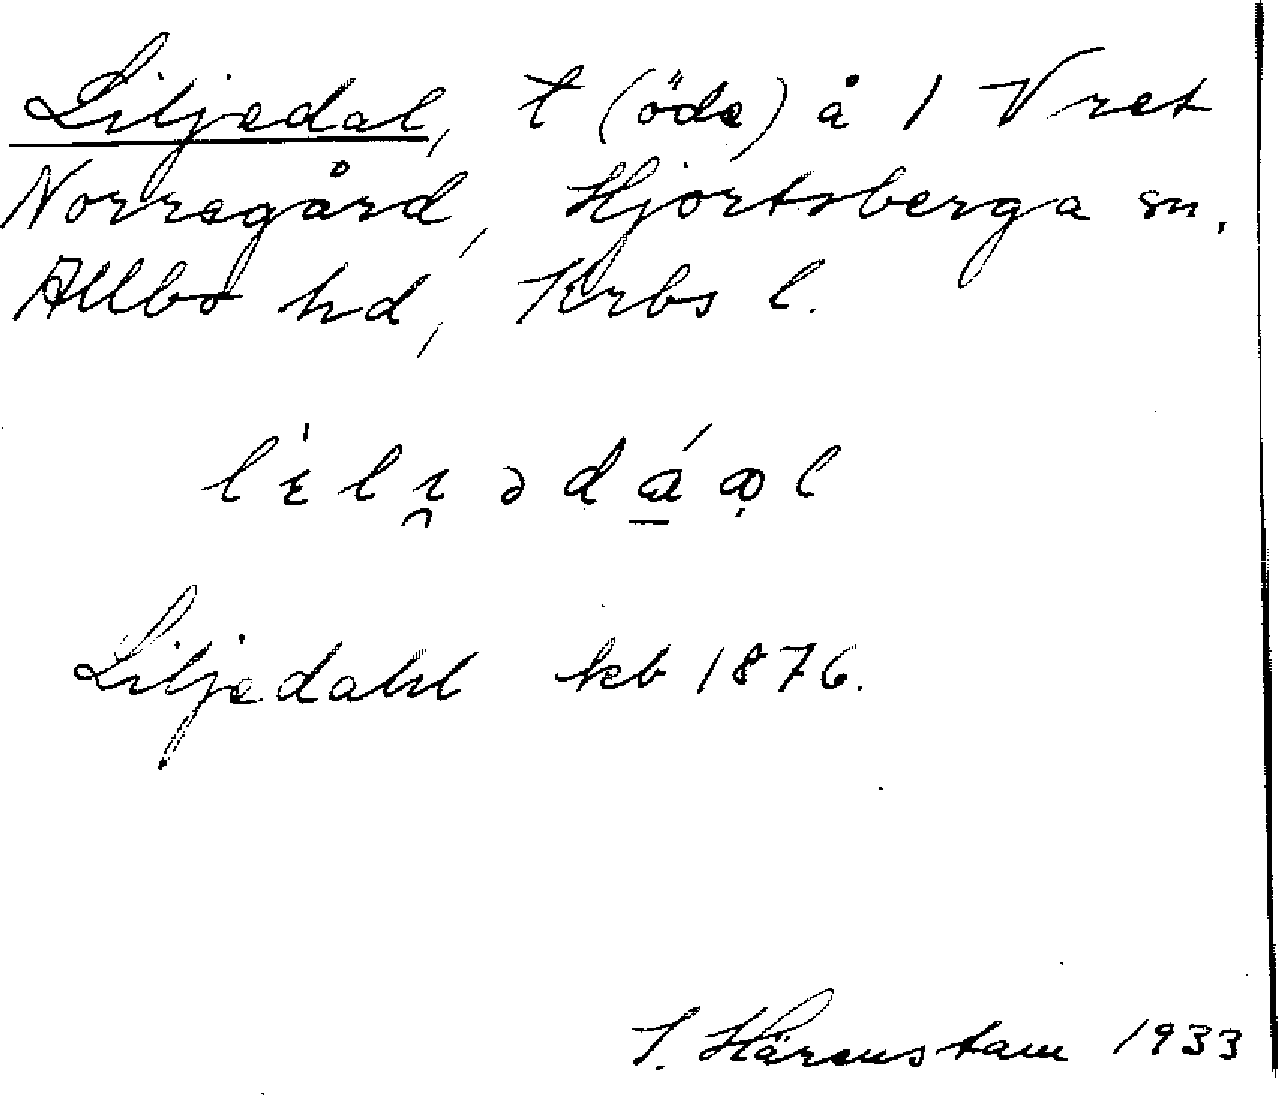 Liljedal, t (öde) å 1 Vret
Norregård, Hjortsberga sn.
Allbo hd, Krbs l.
Liljedahl kb 1876.
Härenstam 1933